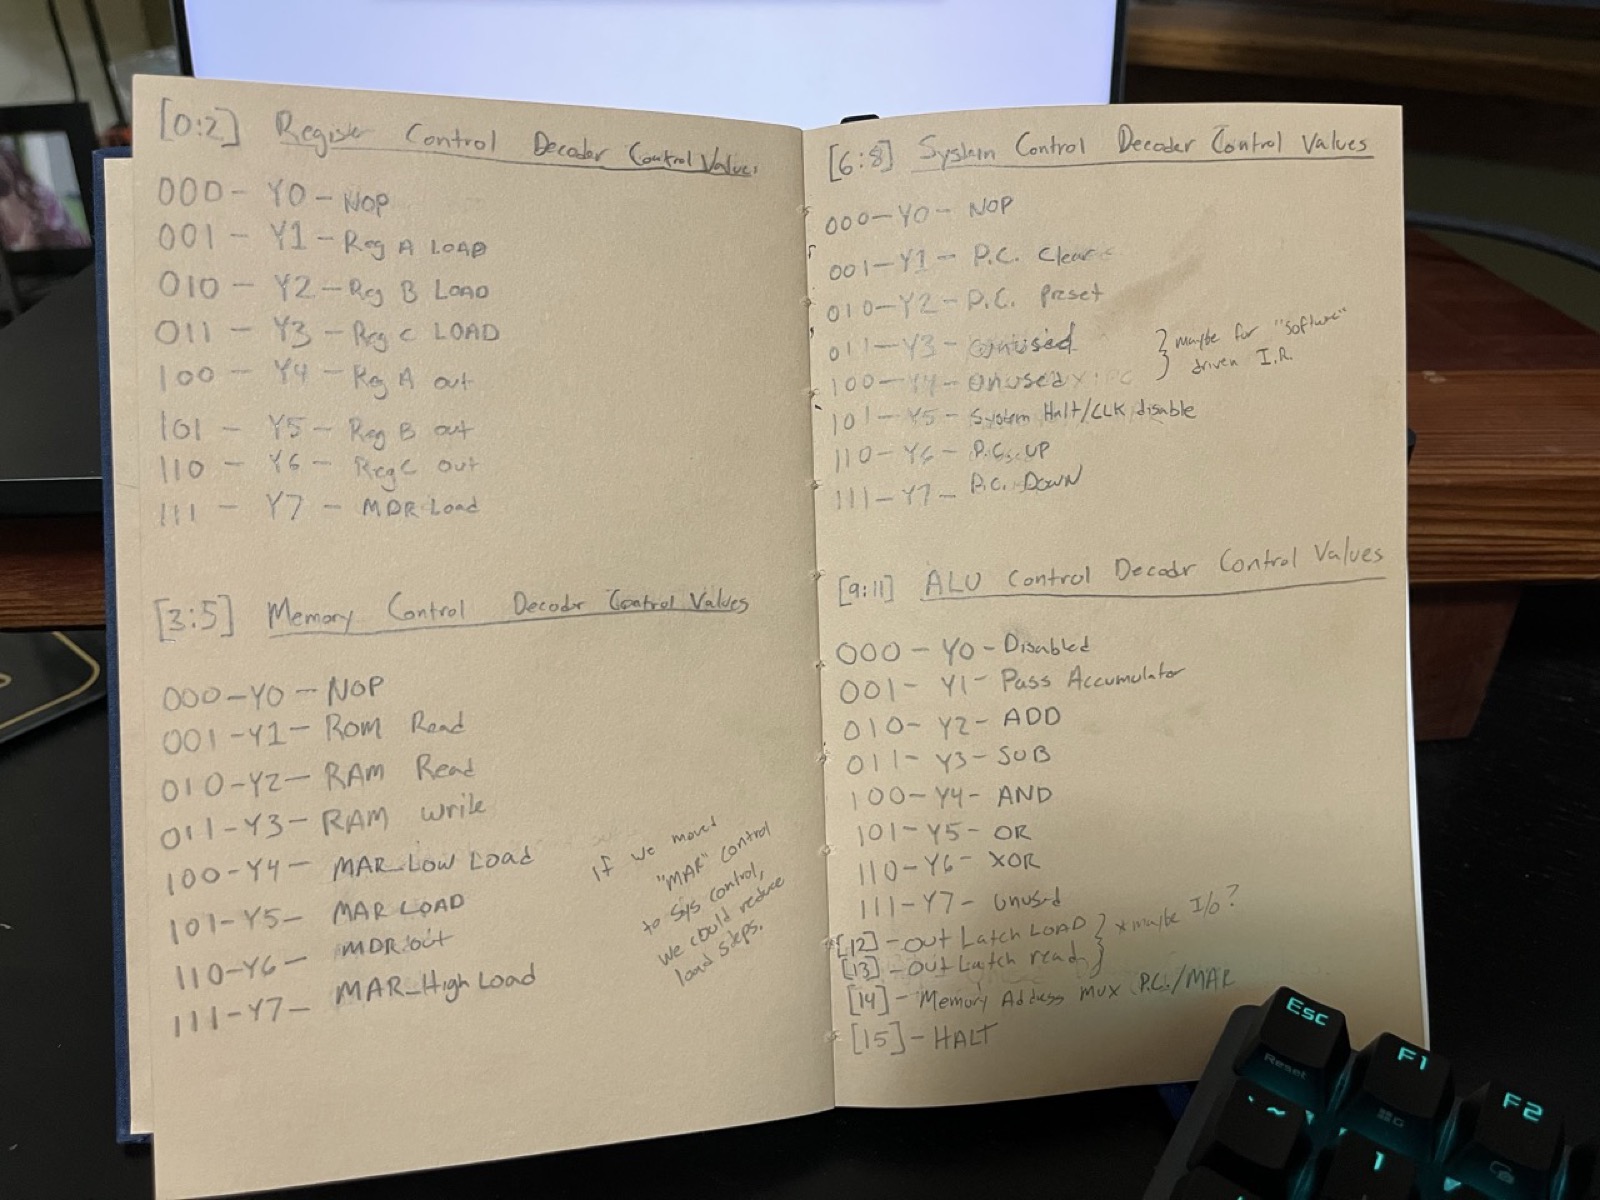 [0:2] Register Control Decoder Control Values
000 - Y0 - NOP
001 - Y1 - Reg A LOAD
010 - Y2 - Reg B LOAD
011 - Y3 - Reg C LOAD
100 - Y4 - Reg A out
101 - Y5 - Reg B out
110 - Y6 - Reg C out
111 - Y7 - MDR Load
[3:5] Memory Control Decodr Control Values
000 - Y0 - NOP
001 - Y1 - ROM Read
010 - Y2 - RAM Read
011 - Y3 - RAM write
100 - Y4 - MAR_Low Load
101 - Y5 - MAR LOAD
110 - Y6 - MDR out
111 - Y7 - MAR_High Load
If we moved
"MAR" control
to Sys control,
we could reduce
load steps.
[6:8] System Control Decoder Control Values
000 - Y0 - NOP
001 - Y1 - P.C. Clear
010 - Y2 - P.C. preset
011 - Y3 - unused
100 - Y4 - Unused
} maybe for "software"
driven I.R.
101 - Y5 - System Halt/CLK disable
110 - Y6 - P.C. UP
111 - Y7 - P.C. DOWN
[9:11] ALU Control Decodr Control Values
000 - Y0 - Disabled
001 - Y1 - Pass Accumulator
010 - Y2 - ADD
011 - Y3 - SUB
100 - Y4 - AND
101 - Y5 - OR
110 - Y6 - XOR
111 - Y7 - Unused
[12] - Out Latch LOAD } * maybe I/O?
[13] - Out Latch read
[14] - Memory Address mux P.C./MAR
[15] - HALT
Esc
Reset
F1
G
F2
~
1